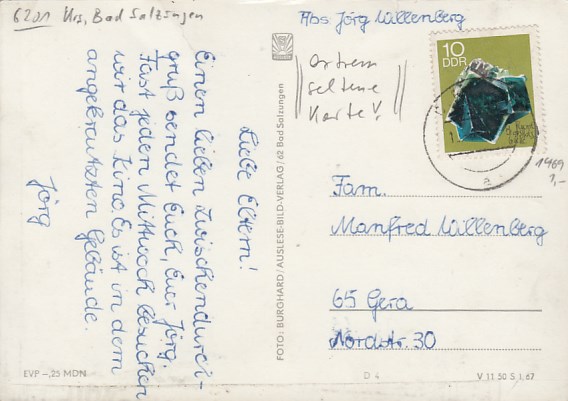 6201 Urs, Bad Salzungen
Abs: Jörg Willenberg
extrem
seltene
Karte!
10
DDR
1969
1,-
Liebe Eltern!
Einen lieben Zwischendurch-
gruß sendet Euch, Euer Jörg.
Fast jeden Mittwoch besuchen
wir das Kino. Es ist in dem
angekreutzten Gebäude.
Jörg
FOTO: BURGHARD / AUSLESE-BILD-VERLAG / 62 Bad Salzungen
Fam.
Manfred Willenberg
65 Gera
Nordstr. 30
EVP -,25 MDN
D 4
V 11 50 S 1,67